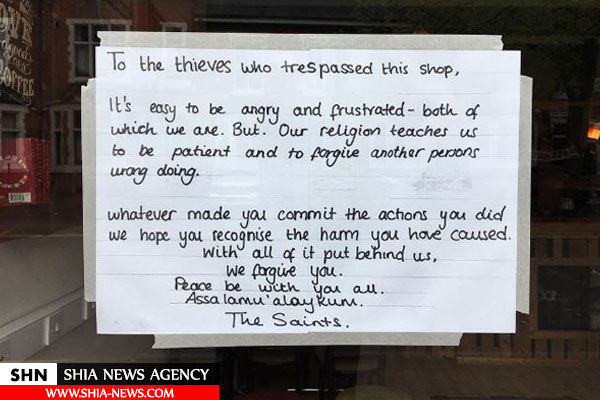 To the thieves who trespassed this shop,
It's easy to be angry and frustrated - both of
which we are. But. Our religion teaches us
to be patient and to forgive another persons
wrong doing.
whatever made you commit the actions you did
we hope you recognise the harm you have caused.
With all of it put behind us,
We forgive you.
Peace be with you all.
Assalamu'alaykum.
The Saints.
COFFEE
SHN SHIA NEWS AGENCY
WWW.SHIA-NEWS.COM